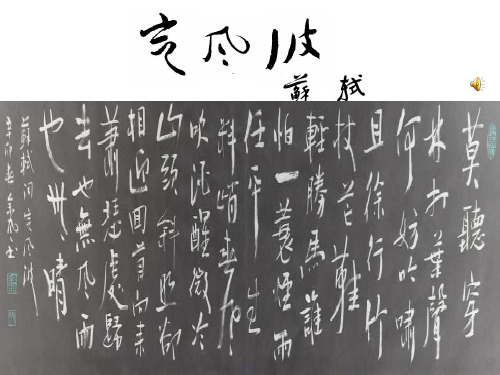 定风波
蘇軾
莫聽穿
林打葉聲
何妨吟嘯
且徐行竹
杖芒鞋
輕勝馬誰
怕一蓑煙雨
任平生
料峭春風
吹酒醒微冷
山頭斜照卻
相迎回首向來
蕭瑟處歸
去也無風雨
也無晴
蘇軾詞定風波
辛卯春